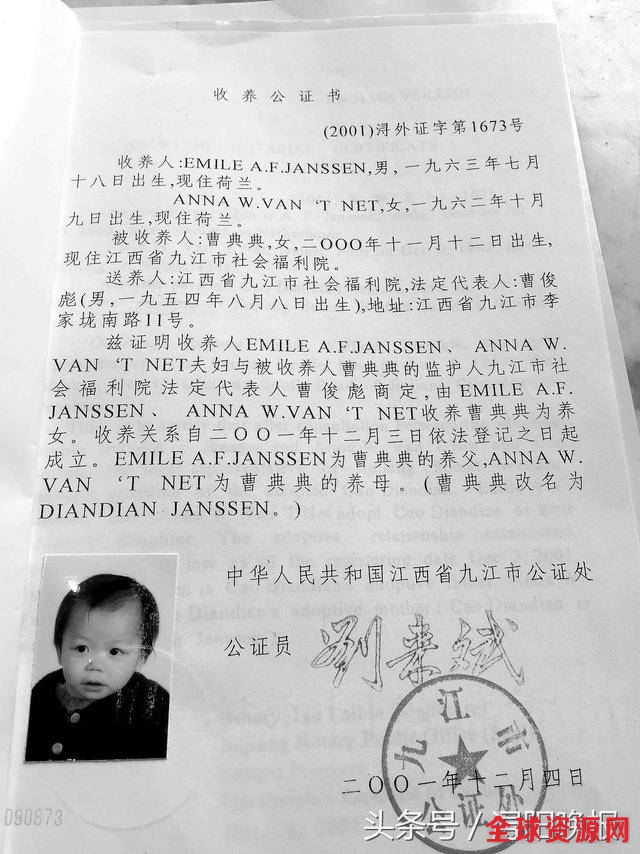 收养公证书
(2001)浔外证字第1673号
收养人:EMILE A.F.JANSSEN,男,一九六三年七月
十八日出生,现住荷兰。
ANNA W.VAN 'T NET,女,一九六二年十
月九日出生,现住荷兰。
被收养人:曹典典,女,二OOO年十一月十二日出生,
现住江西省九江市社会福利院。
送养人:江西省九江市社会福利院,法定代表人:曹俊
彪(男,一九五四年八月八日出生),地址:江西省九江市李
家垅南路11号。
兹证明收养人EMILE A.F.JANSSEN、 ANNA W.
VAN 'T NET夫妇与被收养人曹典典的监护人九江市社
会福利院法定代表人曹俊彪商定,由EMILE A.F.
JANSSEN、 ANNA W.VAN 'T NET收养曹典典为养
女。收养关系自二OO一年十二月三日依法登记之日起
成立。EMILE A.F.JANSSEN为曹典典的养父,ANNA W.
VAN 'T NET为曹典典的养母。(曹典典改名为
DIANDIAN JANSSEN。)
中华人民共和国江西省九江市公证处
公证员 刘来斌
九江市公证处
二OO一年十二月四日
090873
头条号/浔阳晚报
全球资源网